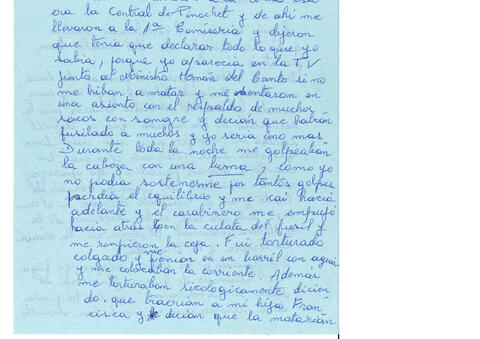 era la Central de Pinochet y de ahi me
llevaron a la 1ª Comiseria y dijeron
que tenia que declarar todo lo que yo
sabia, porque yo aparecia en la T.V
junto al Ministro Hernán del Canto si no
me hiban a matar y me sentaron en
una asionto con el respaldo de muchos
sacos con sangre y decian que habian
fusilado a muchos y yo seria uno mas
Durante toda la noche me golpeaban
la cabeza con una luma y como yo
no podia sostenerme por tantos golpes
perdia el equilibrio y me cai hacia
adelante y el carabinero me empujó
hacia atras con la culata del fusil y
me rompieron la ceja. Fui torturado
colgado y me ponian en un barril con agua
y me colocaban la corriente. Ademas
me torturaban sicologicamente dicien
do. que hacrian a mi hija Fran
cisca y decian que la matarián